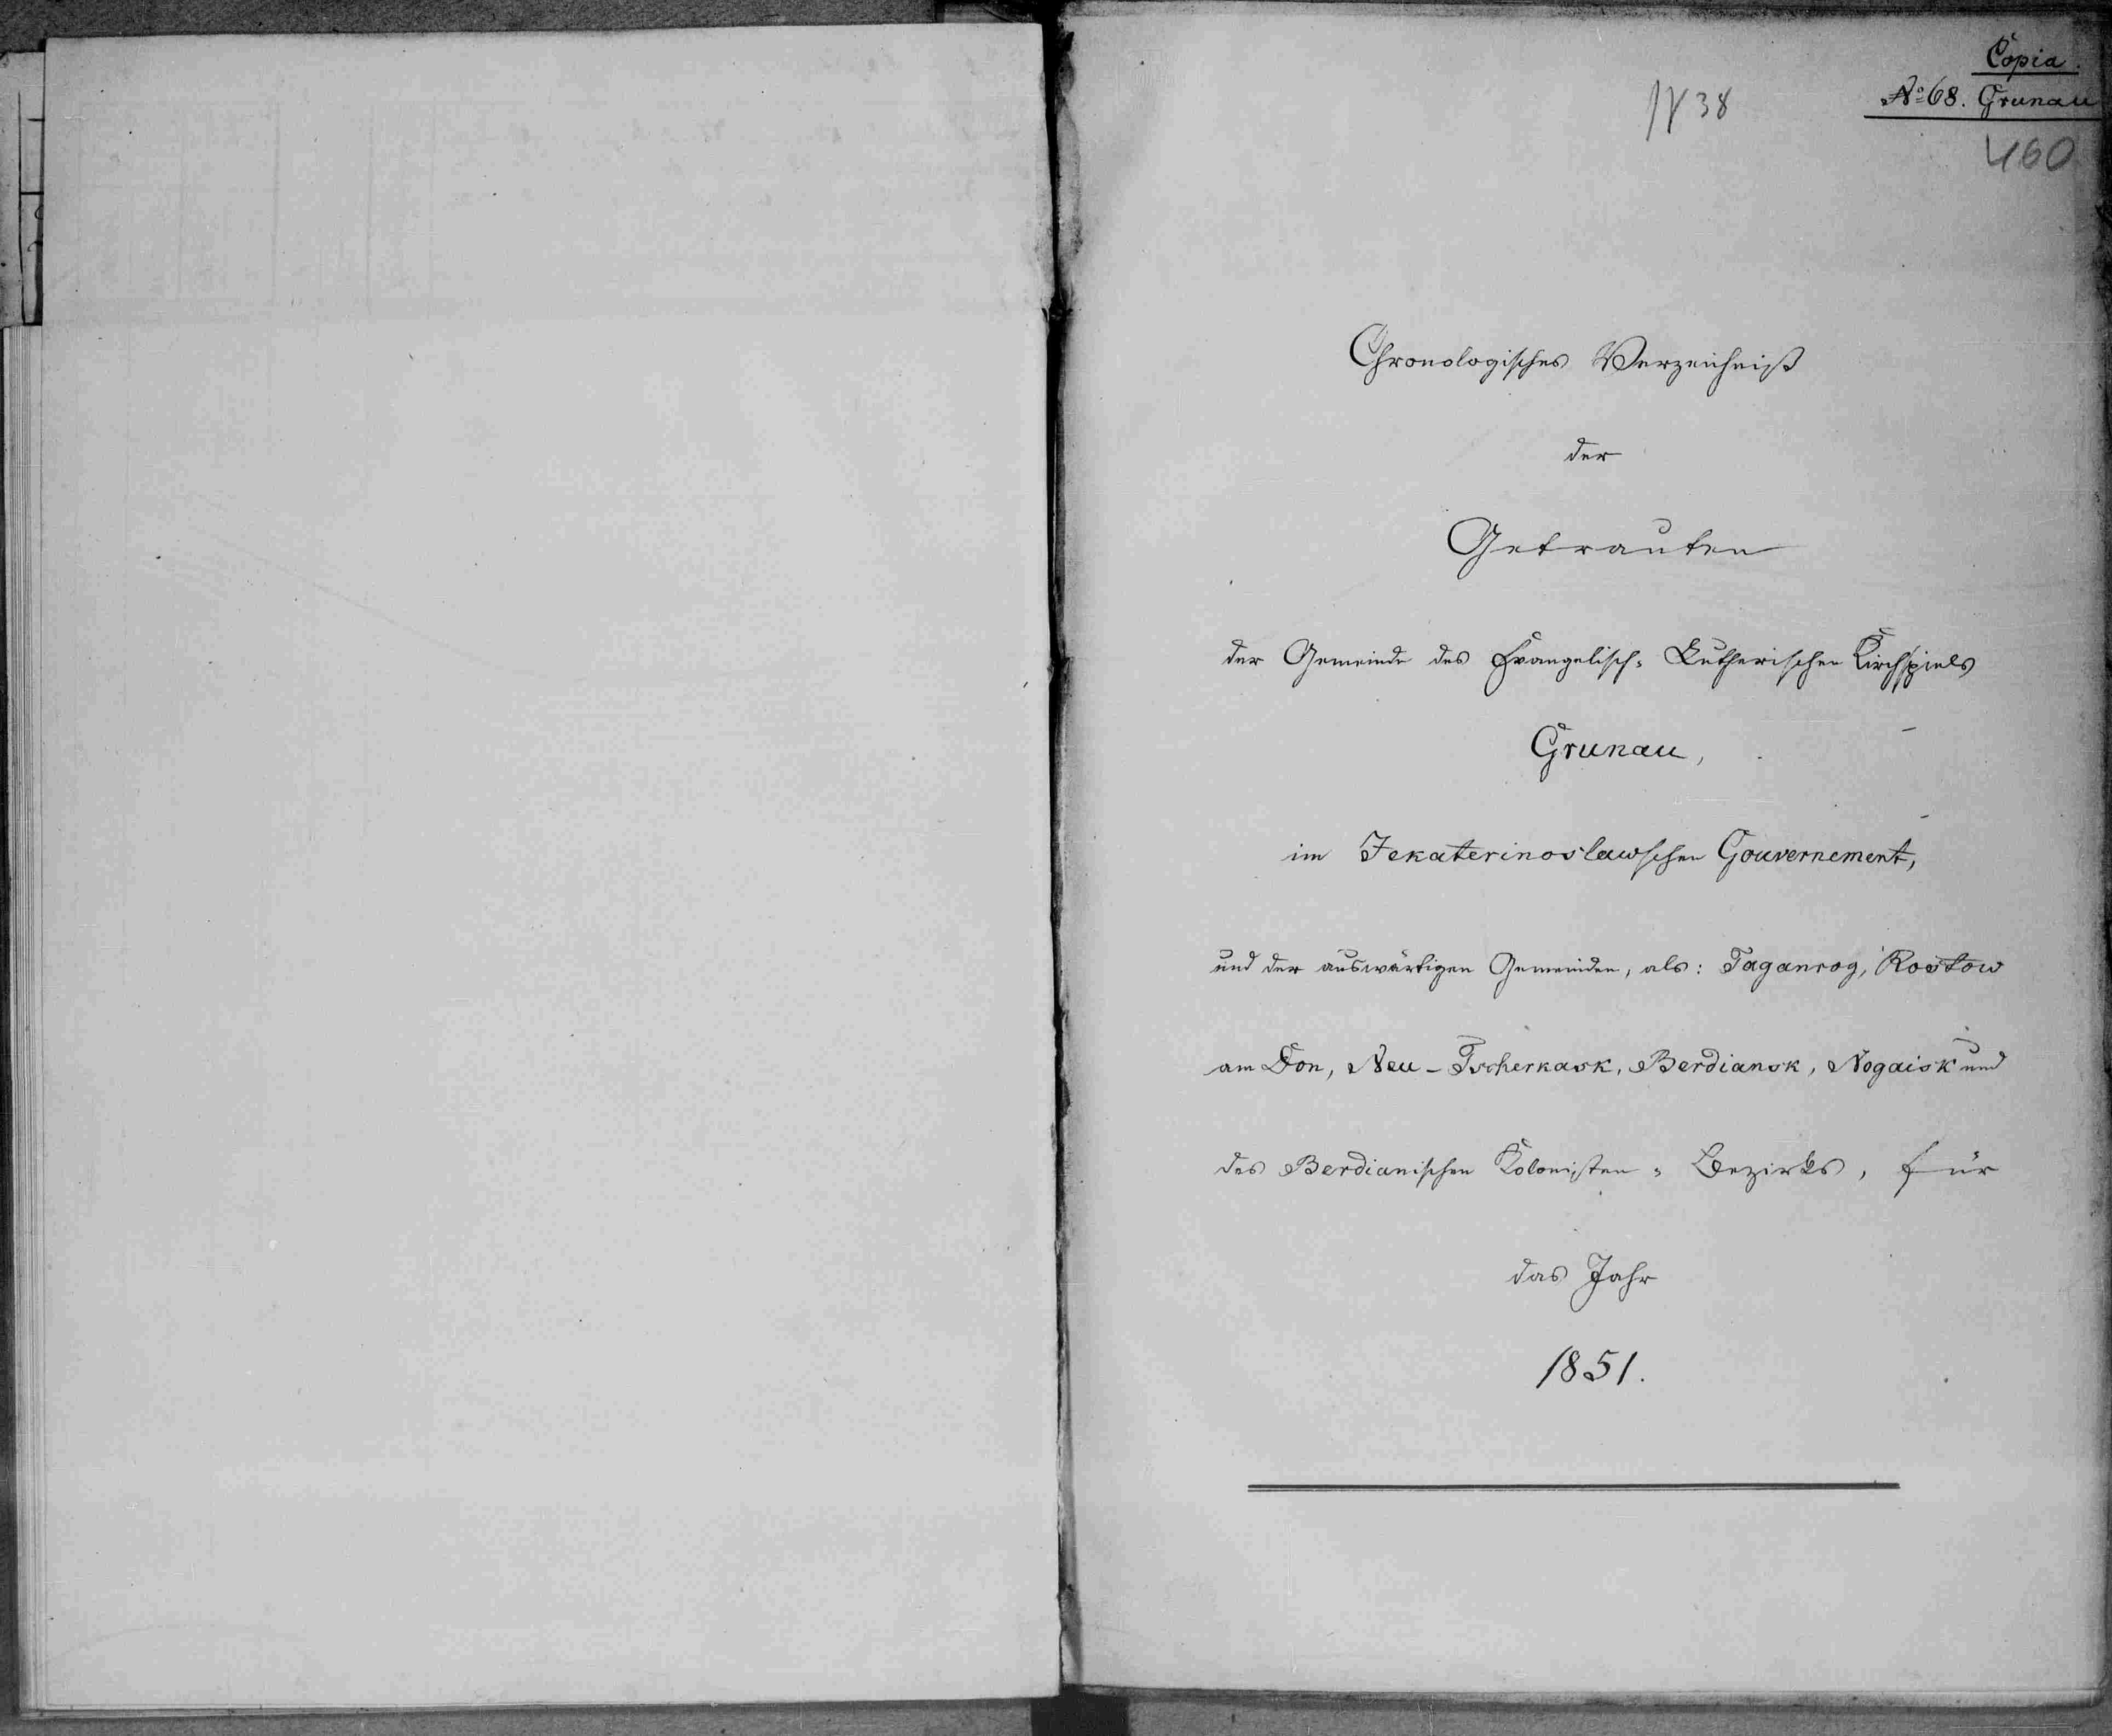 Copia.
№ 68. Grunau
№ 38
460
Chronologisches Verzeichniß
der
Getrauten
der Gemeinde des Evangelisch-Lutherischen Kirchspiels
Grunau,
im Jekaterinoslawschen Gouvernement,
und der auswärtigen Gemeinden, als: Taganrog, Rostow
am Don, Neu-Tscherkask, Berdiansk, Nogaisk und
des Berdianischen Kolonisten-Bezirks, für
das Jahr
1851.